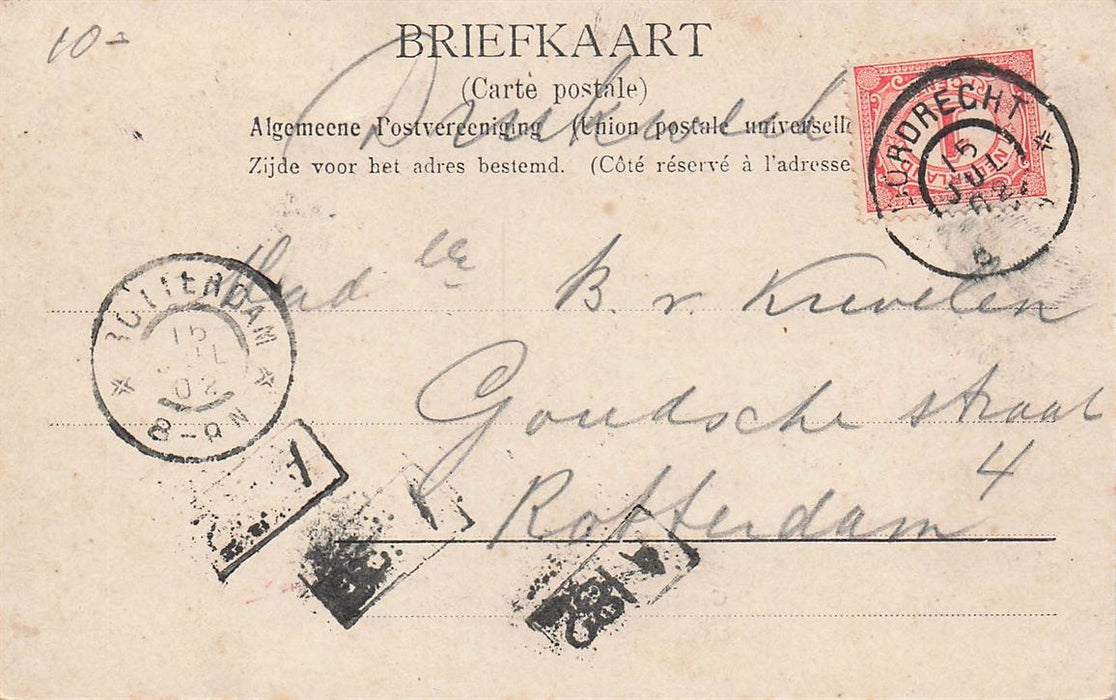 10-
BRIEFKAART
(Carte postale)
Drukwerk
Algemeene Postvereeniging (Union postale universelle
Zijde voor het adres bestemd. (Côté réservé à l'adresse
CENT
NEDERLAND
DORDRECHT
15
JUL
02
Mad lle B. v. Krevelen
ROTTERDAM
15
JUL
02
8-9 N
Goudsche straat
4
Rotterdam